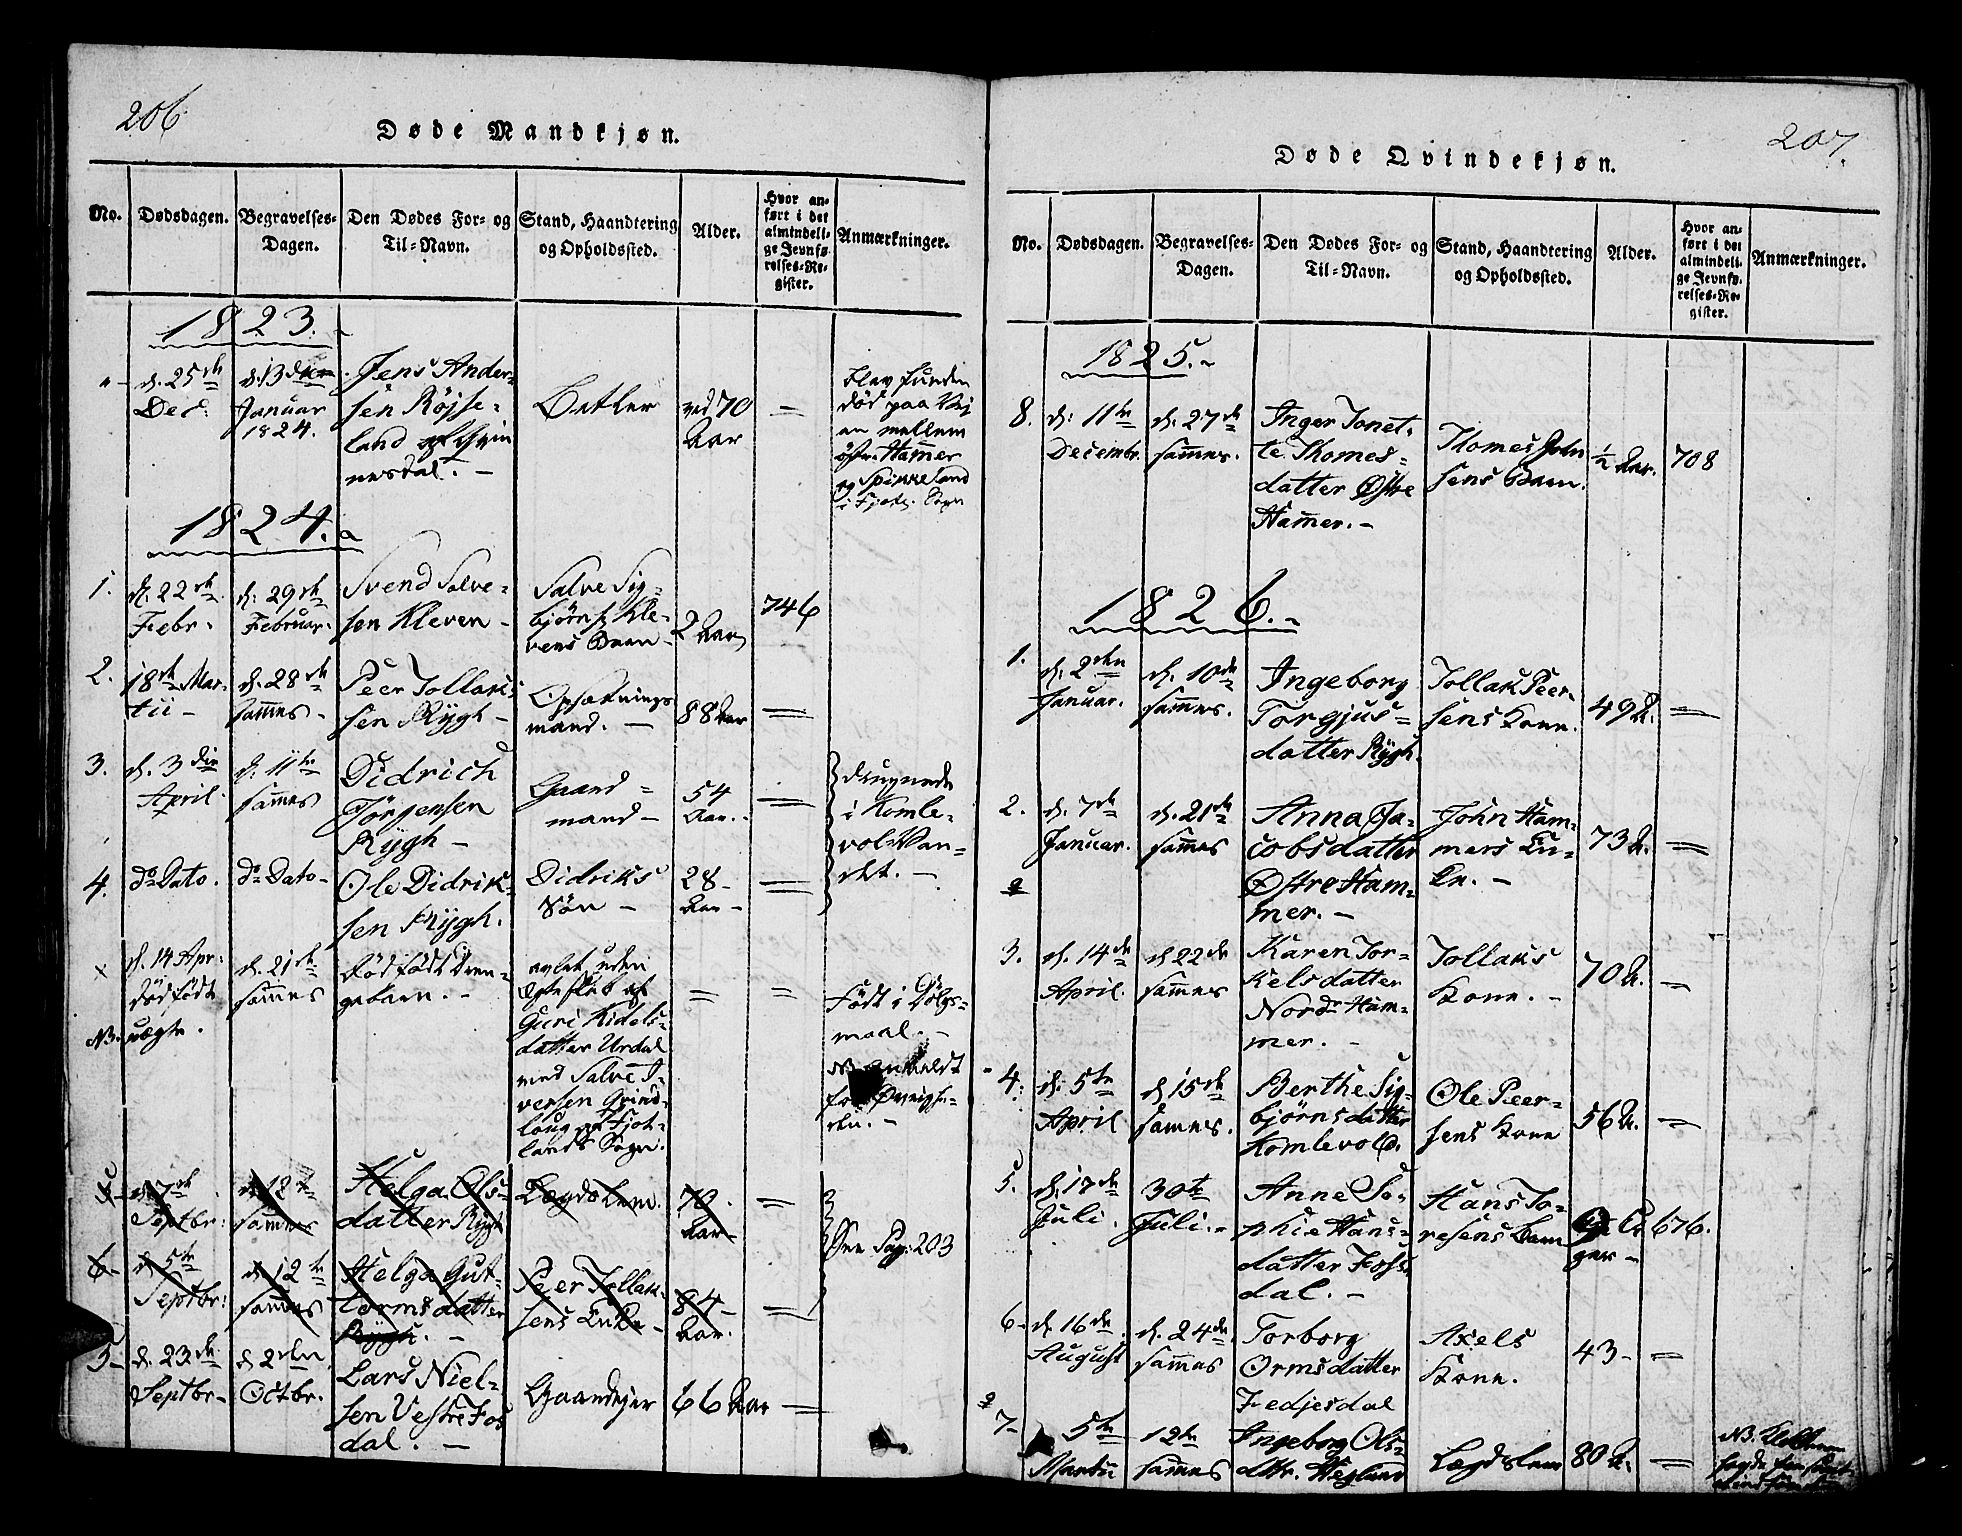 206
Døde Mandkjøn.
No. Dødsdagen. Begravelses-Dagen. Den Dødes For- og Til-Navn. Stand, Haandtering og Opholdssted. Alder. Hvor anført i det almindelige Jevnførelses-Register. Anmærkninger.
1823.
d. 25de Dec: d: 13de Januar 1824. Jens Andersen Röjseland Betler ved 70 Aar — blev funden död paa Vejen mellem östre Hamer og Spikkeland i Fjotl. Sogn
1824.
1. d. 22de Febr. d: 29de Februar. Svend Salvesen Kleven - Salve Sigbjörns. Klevens Barn - 2 Aar 746
2. 18de Martii - d. 28de sammes - Peer Tollaksen Rÿgh - Opsætningsmand. - 88 Aar =
3. d. 3die April d. 11te sammes Didrich Jörgensen Rÿgh - Gaardmand - 54 Aar. =
4. do Dato. do Dato - Ole Didriksen Rÿgh. Didriks Sön - 28 Aar - = druknede i Komlevol Vandet. -
x d. 14 Apr: dödfödt NB. uægte. d. 21de sammes dödfödt Drengebarn. - avlet uden Egteskab af Guri Kidelsdatter Urdal med Salve Iversen Grindlaug Fjotlands Sogn. = = Födt i Dölgsmaal. - NB anmeldt for Øvrigheden. -
5- d. 7de Septbr: d. 12te sammes Helga Olsdatter Rÿgh Lægdslem. 70 Aar =
6- d 5te Septbr: d. 12te sammes Helga Guttormsdatter Rÿgh. - Peer Tollaksens Enke - 84 - Aar. = See Pag: 203
5- d. 23de Septbr- d 2den Octbr. Lars Nielsen Vestre Fosdal. - Gaardejer 66 Aar =
207.
Døde Qvindekjøn.
No. Dødsdagen. Begravelses-Dagen. Den Dødes For- og Til-Navn. Stand, Haandtering og Opholdssted. Alder. Hvor anført i det almindelige Jevnførelses-Register. Anmærkninger.
1825.
8. d: 11te Decembr. d. 27de sammes. Inger Tonette Thomesdatter Østre Hamer. - Thomes Johnsens Barn. ½ Aar. 708
1826.
1. d. 2den Januar. d. 10de sammes. Ingeborg Torgjusdatter Rÿgh. Tollak Peersens Kone. 49 A. =
2. d. 7de Januar. d. 21de sammes Anna Jacobsdatter Østre Hammer. - John Hammers Enke. - 73 A. =
3. d. 14de April. d 22de sammes Karen Torkelsdatter Nordr Hammer. - Tollaks Kone. - 70 A. =
4. d. 5te April d 15de sammes. Berthe Sigbjörnsdatter Komlevold. Ole Peersens Kone 56 A. =
5. d. 17de Juli. 30te Juli. - Anne Sophie Hansdatter Fossdal. - Hans Toresens Barn 676.
6- d. 16de August d. 24de sammes Torborg Ormsdatter Fedjesdal Axels Kone. 43 - =
7- 5te Martii 12te sammes Ingeborg Olsdttr. Hegland Lægdslem 80 A. = NB.